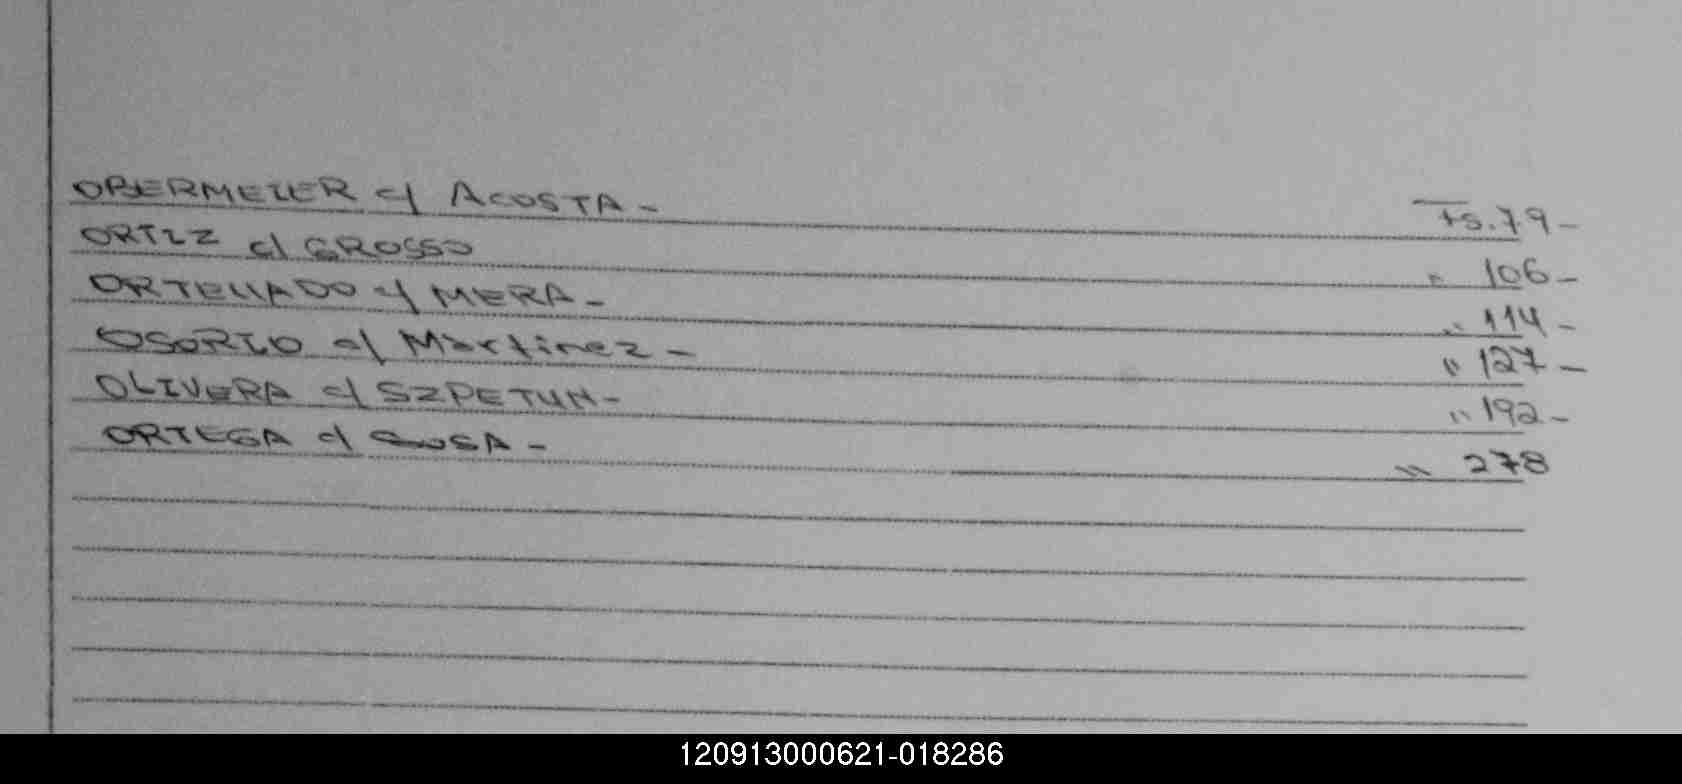 OBERMEIER c/ ACOSTA - Fs. 79 -
ORTIZ c/ GROSSO " 106 -
ORTELLADO c/ MERA - " 114 -
OSORIO c/ Martinez - " 127 -
OLIVERA c/ SZPETUN - " 192 -
ORTEGA c/ SOSA - " 278
120913000621-018286